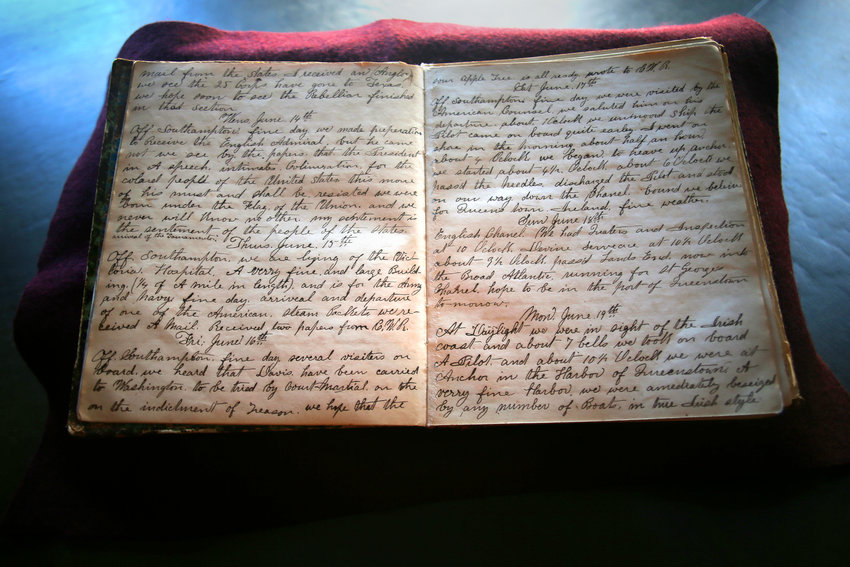 mail from the States. I received an Anglo,
we see the 25 Corps have gone to Texas,
we hope soon to see the Rebellion finished
in that section
Wens. June. 14th
Off. Southampton, fine day we made preperation
to Receive the English Admiral, but he came
not we see by the papers, that the President
in his speech, intimates, Colonization, for the
colard People of the United States this move
of his must and shall be resisted we were
born under the Flag of the Union, and we
never will know no other my sentement is
the sentement of the people of the States
arrival of the Sacramento
Thurs. June. 15th
Off. Southampton, we are lying of the Vic-
toria Hospital. A verry fine and large Build-
ing, (1/4 of A mile in length) and is for the Army
and Navy fine day, arrival and departure
of one of the American, steam Packets we re-
ceived A Mail. Received two papers from R.W.R.
Fri. June. 16th
Off. Southampton. fine day several visitors on
Board, we heard that Davis, have been carried
to Washington to be tried by Court-Martial, on the
on the indictment of Treason. we hope that the
sour Apple Tree is all ready wrote to R.W.R.
Sat June. 17th
Off Southampton, fine day we were visited by the
American Counsul, we saluted him on his
departure about 1 Oclock we unmoord Ship the
Pilot came on bound quite early, I went on
shore in the morning about half an hour,
about 4 Oclock we began to heave up anchor
we started about 4 1/2 Oclock about 6 Oclock we
pass'd the Needles, discharged the Pilot and stood
on our way down the Chanel. bound we believe
for Queens town Ireland, fine weather.
Sun June 18th
English Chanel. We had Quaters and Inspection
at 10 Oclock Devine Serveace at 10 1/2 Oclock
about 3 1/2 Oclock pass'd Lands End, now into
the Broad Atlantic, running for St Georges
Chanel, hope to be in the port of Queenstown
to morrow.
Mon. June 19th
At Daylight we were in sight of the Irish
coast, and about 7 bells we took on board
A Pilot and about 10 1/2 Oclock we were at
Anchor in the Harbor of Queenstown, A
verry fine Harbor, we were amediately beseized
by any number of Boats, in true Irish style